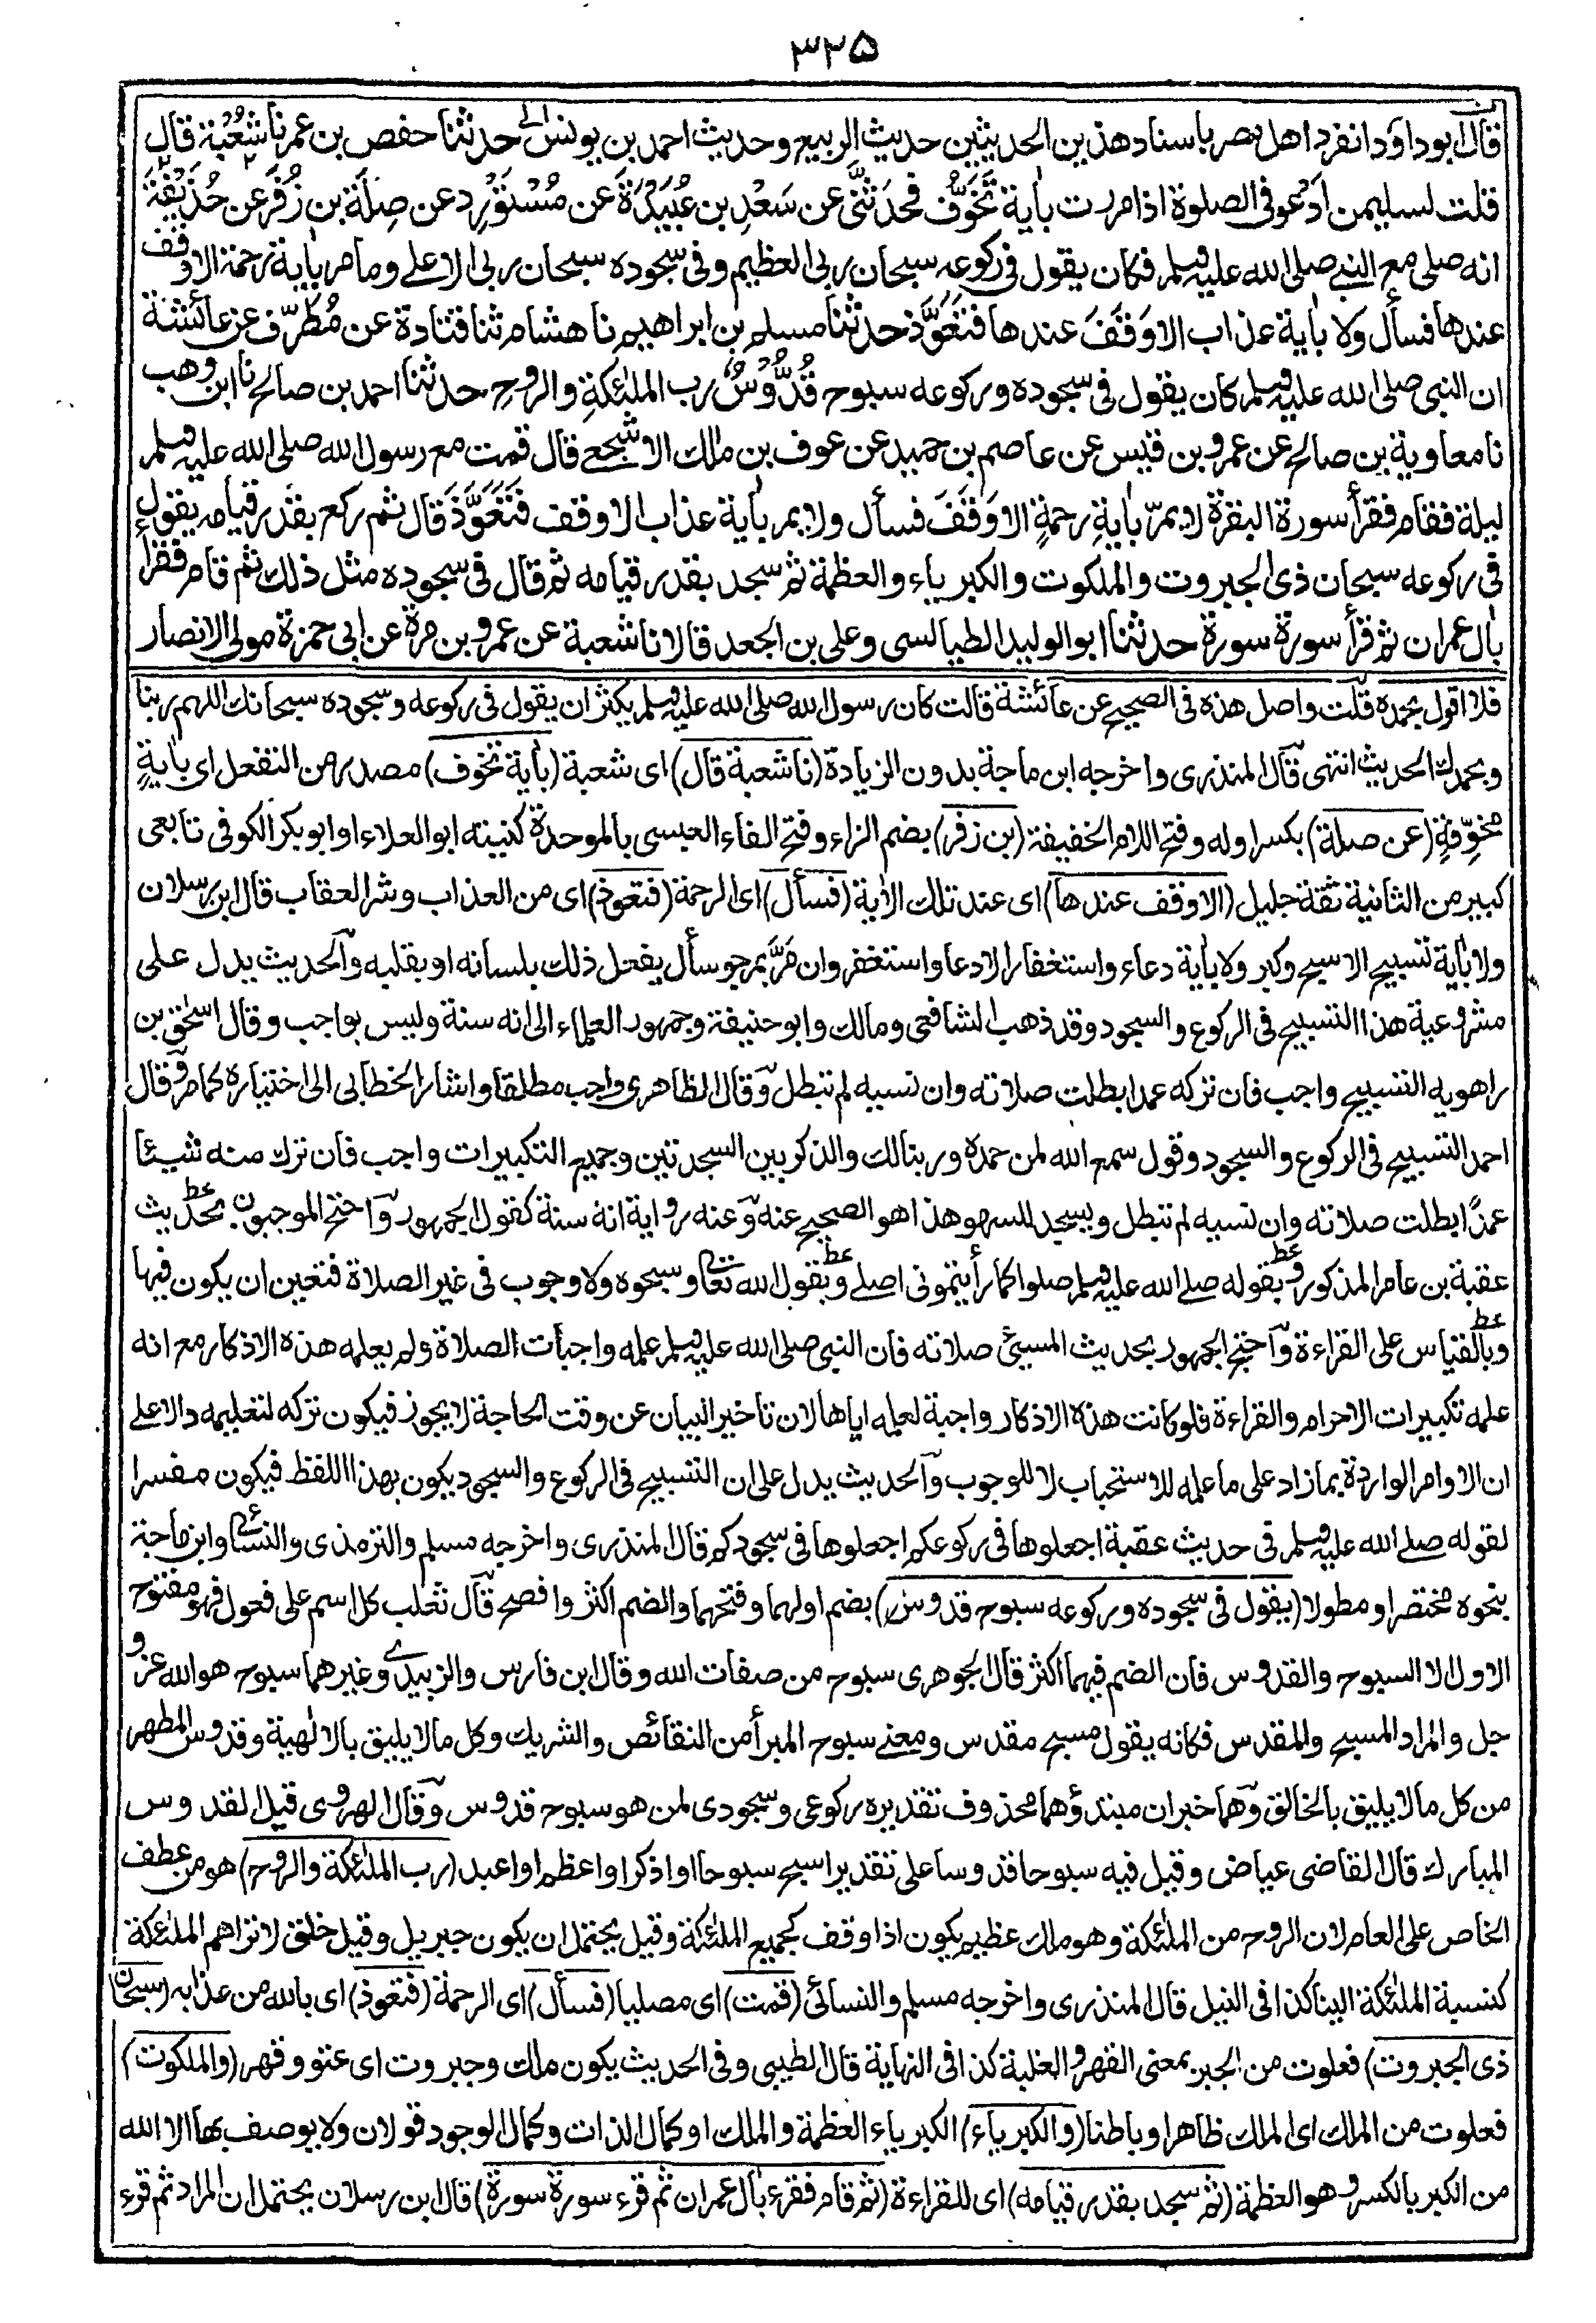 ٣٢٥
قال ابوداؤد انفرد اهل مصر باسناد هذين الحديثين حديث الربيع وحديث احمد بن يونس حدثنا حفص بن عمر نا شعبة قال
قلت لسليمن ادعو فى الصلوة اذا مررت باٰية تَخَوُّف فحدثنى عن سَعْدِ بن عُبَيْدَةَ عن مُسْتَوْرِد عن صِلَةَ بن زُفَرَ عن حُذَيْفَةَ
انه صلى مع النبى صلى الله عليه وسلم فكان يقول فى ركوعه سبحان ربى العظيم وفى سجوده سبحان ربى الاعلے وما مر باٰية رحمة الا وقف
عندها فسأل ولا باٰية عذاب الا وَقَفَ عندها فتَعَوَّذ حدثنا مسلم بن ابراهيم نا هشام ثنا قتادة عن مُطَرِّف عن عائشة
ان النبى صلى الله عليه وسلم كان يقول فى سجوده وركوعه سبوح قُدُّوْسٌ رب الملٰئكةِ والروحِ حدثنا احمد بن صالح نا ابن وهب
نا معاوية بن صالح عن عمرو بن قيس عن عاصم بن حميد عن عوف بن مالك الاشجعى قال قمت مع رسول الله صلى الله عليه وسلم
ليلة فقام فقرأ سورة البقرة لا يمرّ باٰيةِ رحمةٍ الا وَقَفَ فسأل ولا يمر باٰية عذاب الا وقف فَتَعَوَّذَ قال ثم ركع بقدر قيامه يقول
فى ركوعه سبحان ذى الجبروت والملكوت والكبرياء والعظمة ثم سجد بقدر قيامه ثم قال فى سجوده مثل ذلك ثم قام فقرأ
باٰل عمران ثم قرأ سورة سورة حدثنا ابو الوليد الطيالسى وعلى بن الجعد قالا نا شعبة عن عمرو بن مرة عن ابى حمزة مولى الانصار
فلا اقول بحمده قلت واصل هذه فى الصحيح عن عائشة قالت كان رسول الله صلى الله عليه وسلم يكثر ان يقول فى ركوعه وسجوده سبحانك اللهم ربنا
وبحمدك الحديث انتهى قال المنذرى واخرجه ابن ماجة بدون الزيادة (نا شعبة قال) اى شعبة (باٰية تخوف) مصدر من التفعل اى باٰيةٍ
مخوِّفةٍ (عن صلة) بكسر اوله وفتح اللام الخفيفة (بن زفر) بضم الزاء وفتح الفاء العبسى بالموحدة كنيته ابو العلاء او ابو بكر الكوفى تابعى
كبير من الثانية ثقة جليل (الا وقف عندها) اى عند تلك الاٰية (فسأل) اى الرحمة (فتعوذ) اى من العذاب وشر العقاب قال ابن رسلان
ولا باٰية تسبيح الا سبح وكبر ولا باٰية دعاء واستغفار الا دعا واستغفر وان مَرَّ بمرجو سأل يفعل ذلك بلسانه او بقلبه والحديث يدل على
مشروعية هذا التسبيح فى الركوع والسجود وقد ذهب الشافعى ومالك وابو حنيفة وجمهور العلماء الى انه سنة وليس بواجب وقال اسحٰق بن
راهويه التسبيح واجب فان تركه عمدا بطلت صلاته وان نسيه لم تبطل وقال الظاهرى واجب مطلقا واشار الخطابى الى اختياره كما مر وقال
احمد التسبيح فى الركوع والسجود وقول سمع الله لمن حمده وربنا لك والذكر بين السجدتين وجميع التكبيرات واجب فان ترك منه شيئا
عمدًا بطلت صلاته وان نسيه لم تبطل ويسجد للسهو هذا هو الصحيح عنه وعنه رواية انه سنة كقول الجمهور واحتج الموجبون بحديث
عقبة بن عامر المذكور وبقوله صلى الله عليه وسلم صلوا كما رأيتمونى اصلى وبقول الله تعالى وسبحوه ولا وجوب فى غير الصلاة فتعين ان يكون فيها
وبالقياس على القراءة واحتج الجمهور بحديث المسيئ صلاته فان النبى صلى الله عليه وسلم علمه واجبات الصلاة ولم يعلمه هذه الاذكار مع انه
علمه تكبيرات الاحرام والقراءة فلو كانت هذه الاذكار واجبة لعلمه اياها لان تاخير البيان عن وقت الحاجة لا يجوز فيكون تركه لتعليمه دالا على
ان الاوامر الواردة بما زاد على ما علمه للاستحباب لا للوجوب والحديث يدل على ان التسبيح فى الركوع والسجود يكون بهذا اللفظ فيكون مفسرا
لقوله صلى الله عليه وسلم فى حديث عقبة اجعلوها فى ركوعكم اجعلوها فى سجودكم قال المنذرى واخرجه مسلم والترمذى والنسائى وابن ماجة
بنحوه مختصرا ومطولا (يقول فى سجوده وركوعه سبوح قدوس) بضم اولهما وفتحهما والضم اكثر وافصح قال ثعلب كل اسم على فعول فهو مفتوح
الاول الا السبوح والقدوس فان الضم فيهما اكثر قال الجوهرى سبوح من صفات الله وقال ابن فارس والزبيدى وغيرهما سبوح هو الله عز و
جل والمراد المسبح والمقدس فكانه يقول مسبح مقدس ومعنى سبوح المبرأ من النقائص والشريك وكل ما لا يليق بالالٰهية وقدوس المطهر
من كل ما لا يليق بالخالق وهما خبران مبتدؤهما محذوف تقديره ركوعى وسجودى لمن هو سبوح قدوس وقال الهروى قيل القدوس
المبارك قال القاضى عياض وقيل فيه سبوحا قدوسا على تقدير اسبح سبوحا او اذكر او اعظم او اعبد (رب الملٰئكة والروح) هو من عطف
الخاص على العام لان الروح من الملٰئكة وهو ملك عظيم يكون اذا وقف كجميع الملٰئكة وقيل يحتمل ان يكون جبريل وقيل خلق لا تراهم الملٰئكة
كنسبة الملٰئكة الينا كذا فى النيل قال المنذرى واخرجه مسلم والنسائى (قمت) اى مصليا (فسأل) اى الرحمة (فتعوذ) اى بالله من عذابه (سبحان
ذى الجبروت) فعلوت من الجبر بمعنى القهر والغلبة كذا فى النهاية قال الطيبى وفى الحديث يكون ملك وجبروت اى عتو وقهر (والملكوت)
فعلوت من الملك اى الملك ظاهرا وباطنا (والكبرياء) الكبرياء العظمة والملك او كمال الذات وكمال الوجود قولان ولا يوصف بها الا الله
من الكبر بالكسر وهو العظمة (ثم سجد بقدر قيامه) اى للقراءة (ثم قام فقرء باٰل عمران ثم قرء سورة سورة) قال ابن رسلان يحتمل ان المراد ثم قرء